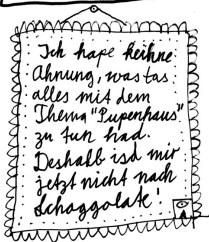 Ich hape keihne
Ahnung, was tas
alles mit dem
Thema "Pupenhaus"
zu tun had.
Deshalb isd mir
jetzt nicht nach
Schoggolate!